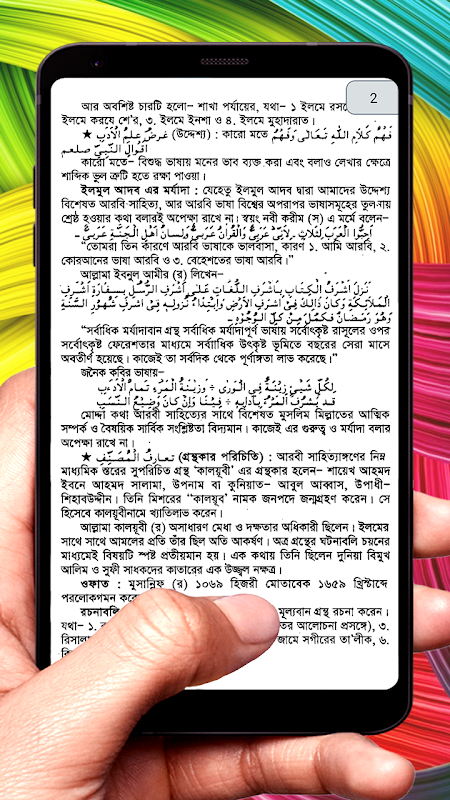 2
আর অবশিষ্ট চারটি হলো– শাখা পর্যায়ের, যথা– ১ ইলমে রসমে
ইলমে করযে শে'র, ৩. ইলমে ইনশা ও ৪. ইলমে মুহাদারাত।
★ غرض علم الأدب (উদ্দেশ্য) : কারো মতে فَهْمُ كَلَامِ اللهِ تَعَالٰى وَفَهْمُ
أَقْوَالِ النَّبِيِّ صلعم
কারো মতে– বিশুদ্ধ ভাষায় মনের ভাব ব্যক্ত করা এবং বলাও লেখার ক্ষেত্রে
শাব্দিক ভুল ত্রুটি হতে রক্ষা পাওয়া।
ইলমুল আদব এর মর্যাদা : যেহেতু ইলমুল আদব দ্বারা আমাদের উদ্দেশ্য
বিশেষত আরবি সাহিত্য, আর আরবি ভাষা বিশ্বের অপরাপর ভাষাসমূহের তুলনায়
শ্রেষ্ঠ হওয়ার কথা বলারই অপেক্ষা রাখে না। স্বয়ং নবী করীম (স) এ মর্মে বলেন–
أَحِبُّوا الْعَرَبَ لِثَلَاثٍ – لِأَنِّيْ عَرَبِيٌّ وَالْقُرْاٰنُ عَرَبِيٌّ وَلِسَانُ أَهْلِ الْجَنَّةِ عَرَبِيٌّ –
“তোমরা তিন কারণে আরবি ভাষাকে ভালবাসা, কারণ ১. আমি আরবি, ২.
কোরআনের ভাষা আরবি ও ৩. বেহেশতের ভাষা আরবি।”
আল্লামা ইবনুল আমীর (র) লিখেন–
نَزَلَ أَشْرَفُ الْكِتَابِ بِأَشْرَفِ اللُّغَاتِ عَلٰى أَشْرَفِ الرُّسُلِ بِسِفَارَةِ أَشْرَفِ
الْمَلَائِكَةِ وَكَانَ ذَالِكَ فِيْ أَشْرَفِ الْأَرْضِ وَابْتِدَاءُ نُزُوْلِهِ فِيْ أَشْرَفِ شُهُوْرِ السَّنَةِ
وَهُوَ رَمَضَانُ فَكَمُلَ مِنْ كُلِّ الْوُجُوْهِ –
“সর্বাধিক মর্যাদাবান গ্রন্থ সর্বাধিক মর্যাদাপূর্ণ ভাষায় সর্বোৎকৃষ্ট রাসূলের ওপর
সর্বোৎকৃষ্ট ফেরেশতার মাধ্যমে সর্বাধিক উৎকৃষ্ট ভূমিতে বছরের সেরা মাসে
অবতীর্ণ হয়েছে। কাজেই তা সর্বদিক থেকে পূর্ণাঙ্গতা লাভ করেছে।”
জনৈক কবির ভাষায়–
لِكُلِّ شَيْئٍ زِيْنَةٌ فِي الْوَرٰى ÷ وَزِيْنَةُ الْمَرْءِ تَمَامُ الْأَدَبِ
قَدْ يَشْرُفُ الْمَرْءُ بِآدَابِهِ ÷ فِيْنَا وَإِنْ كَانَ وَضِيْعَ النَّسَبِ
মোদ্দা কথা আরবী সাহিত্যের সাথে বিশেষত মুসলিম মিল্লাতের আত্মিক
সম্পর্ক ও বৈষয়িক সার্বিক সংশ্লিষ্টতা বিদ্যমান। কাজেই এর গুরুত্ব ও মর্যাদা বলার
অপেক্ষা রাখে না।
★ تعارف المصنف (গ্রন্থকার পরিচিতি) : আরবী সাহিত্যাঙ্গণের নিম্ন
মাধ্যমিক স্তরের সুপরিচিত গ্রন্থ 'কালয়ূবী' এর গ্রন্থকার হলেন– শায়েখ আহমদ
ইবনে আহমদ সালামা, উপনাম বা কুনিয়াত– আবুল আব্বাস, উপাধী–
শিহাবউদ্দীন। তিনি মিশরের “কালয়ূব” নামক জনপদে জন্মগ্রহণ করেন। সে
হিসেবে কালয়ূবীনামে খ্যাতিলাভ করেন।
আল্লামা কালয়ূবী (র) অসাধারণ মেধা ও দক্ষতার অধিকারী ছিলেন। ইলমের
সাথে সাথে আমলের প্রতি তাঁর ছিল অতি আকর্ষণ। অত্র গ্রন্থের ঘটনাবলি চয়নের
মাধ্যমেই বিষয়টি স্পষ্ট প্রতীয়মান হয়। এক কথায় তিনি ছিলেন দুনিয়া বিমুখ
আলিম ও সুফী সাধকদের কাতারের এক উজ্জ্বল নক্ষত্র।
ওফাত : মুসান্নিফ (র) ১০৬৯ হিজরী মোতাবেক ১৬৫৯ খ্রিস্টাব্দে
পরলোকগমন করে
রচনাবলি মূল্যবান গ্রন্থ রচনা করেন।
যথা– ১. তের আলোচনা প্রসঙ্গে), ৩.
রিসালা জামে সগীরের তা'লীক, ৬.